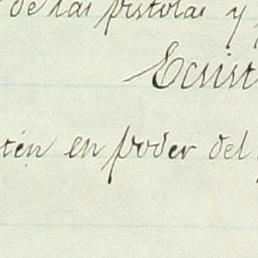 de las pistolas y
Ecsist
tén en poder del